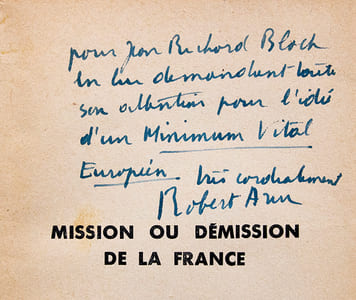 pour Jean Richard Bloch
en lui demandant toute
son attention pour l'idée
d'un Minimum Vital
Européen. très cordialement
Robert Aron
MISSION OU DÉMISSION
DE LA FRANCE